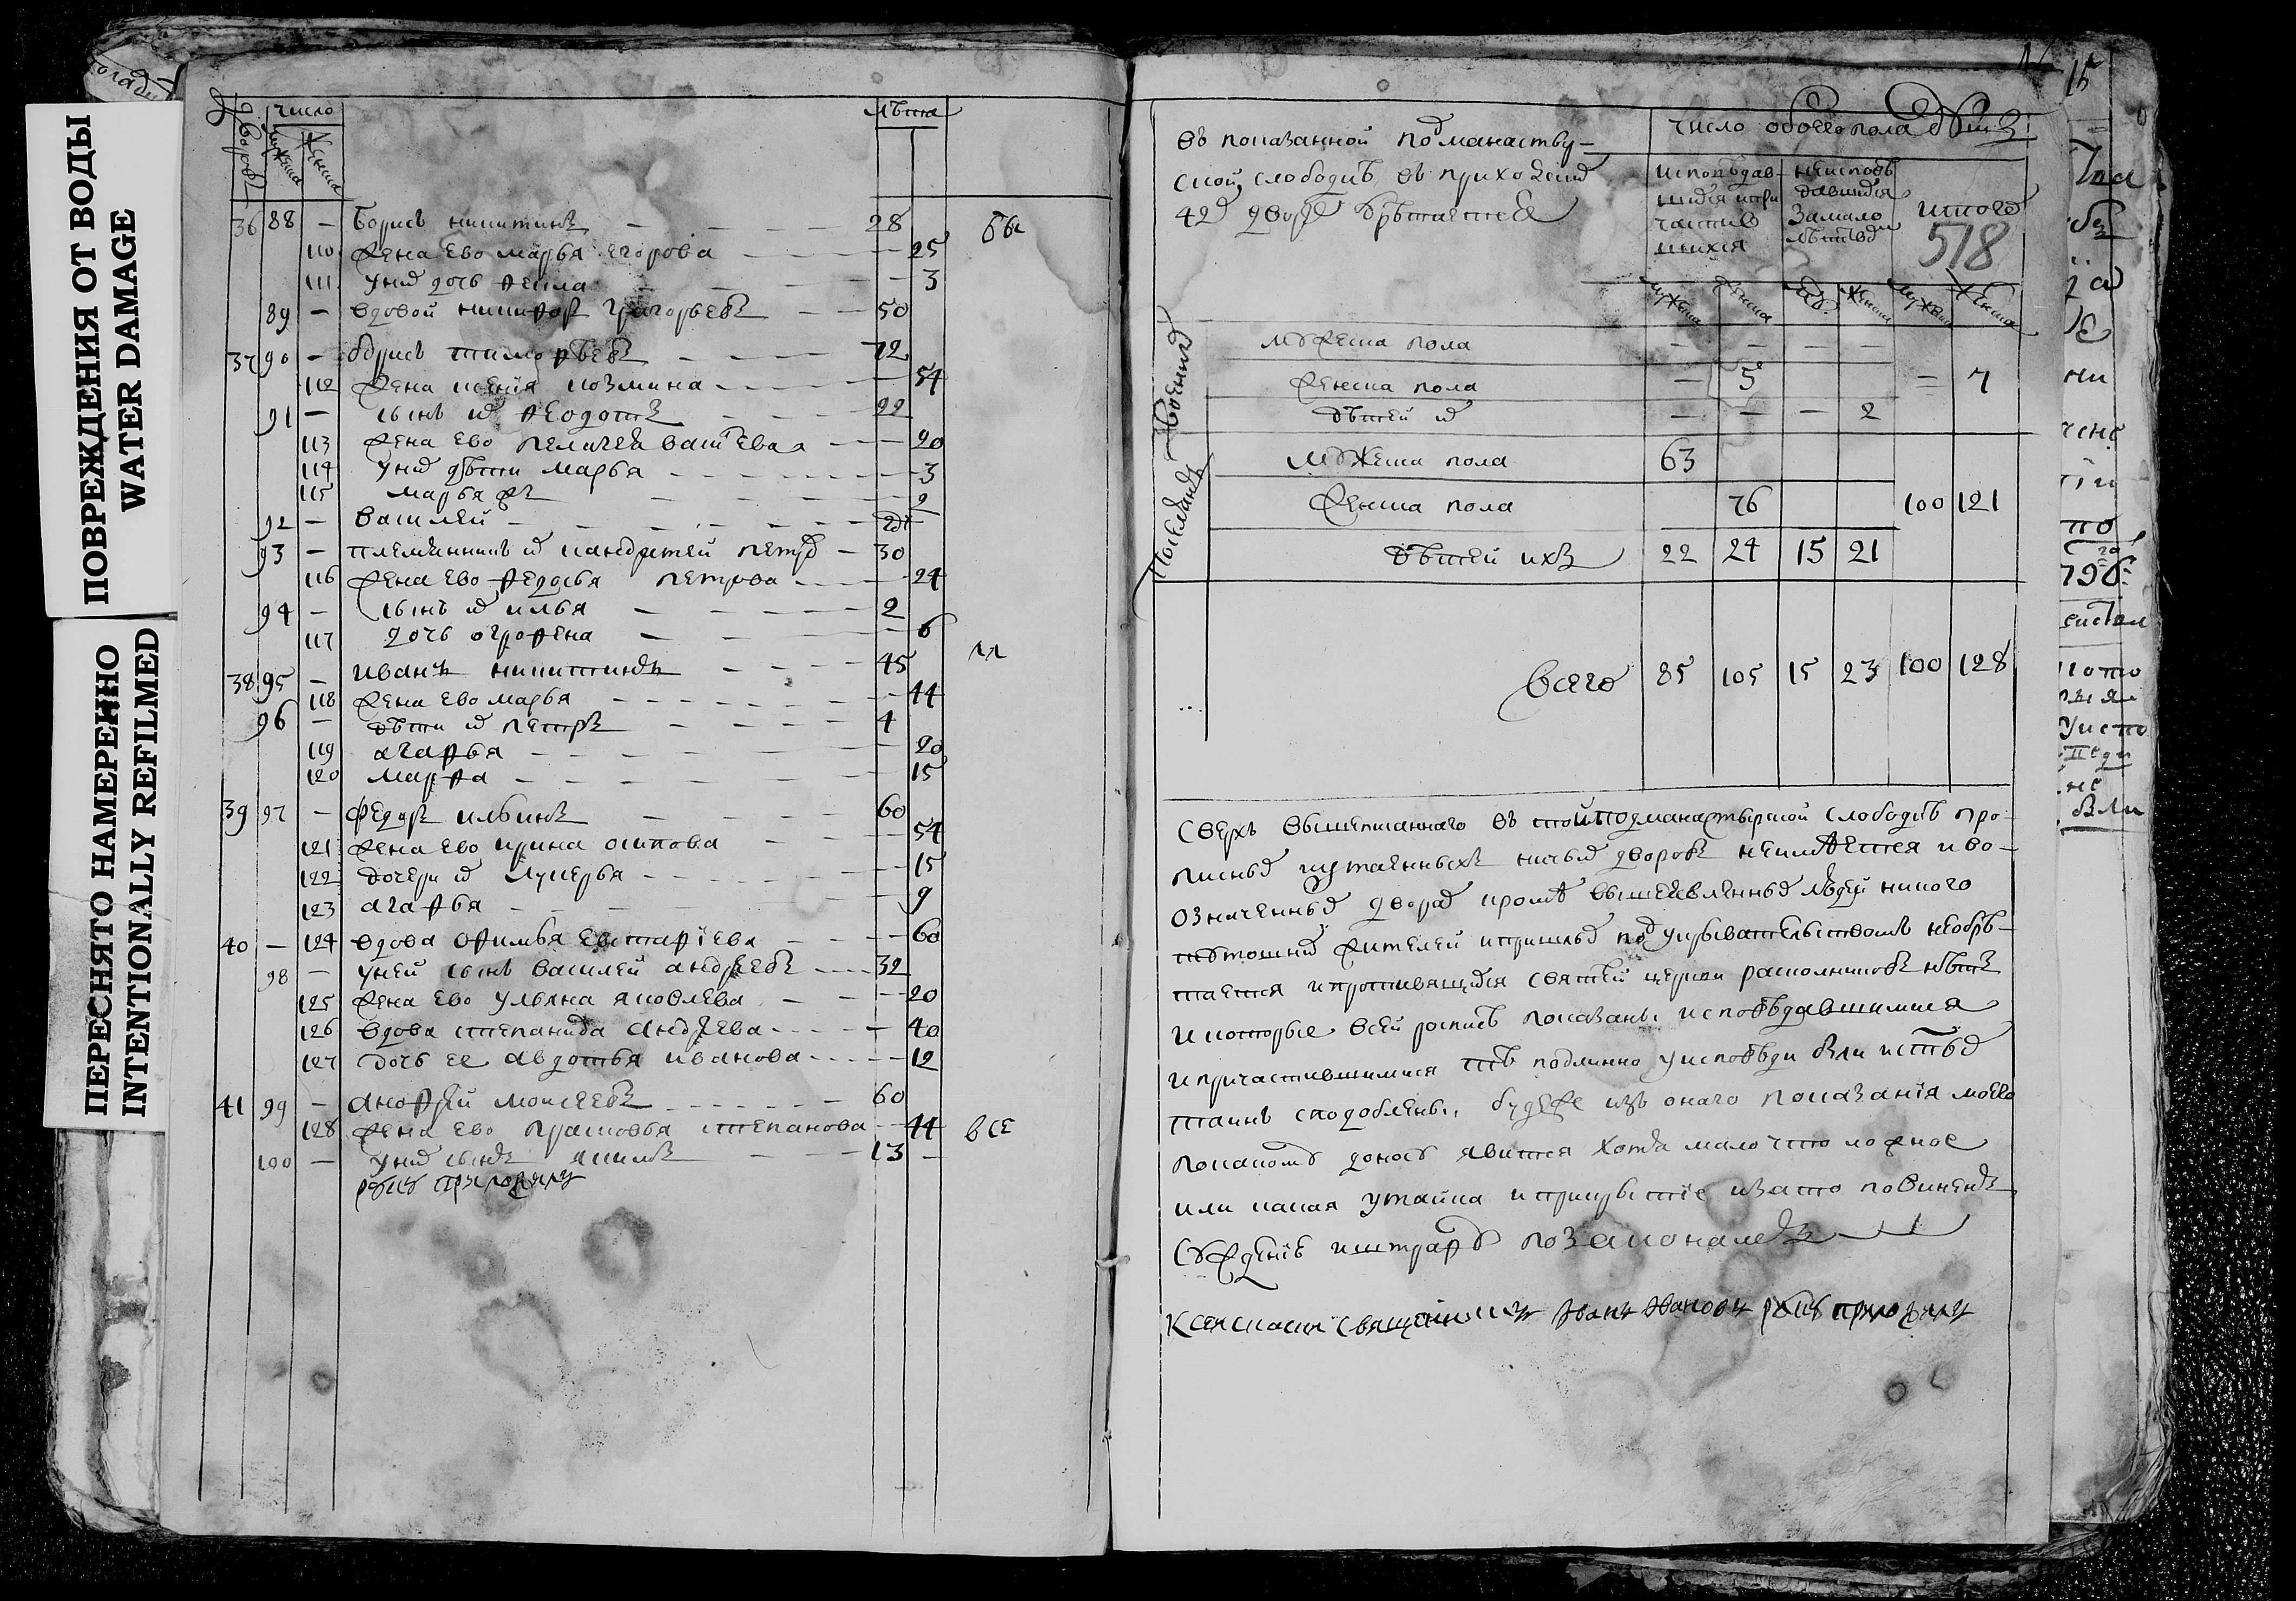 ПОВРЕЖДЕНИЯ ОТ ВОДЫ
WATER DAMAGE
ПЕРЕСНЯТО НАМЕРЕННО
INTENTIONALLY REFILMED
число лѣта
дворовъ мужеска женска
36 88 — борисъ никитинъ — 28
110 жена ево марья егорова — 25
111 у них дочь фекла — 3
89 — вдовой никифоръ григорьевъ — 50
37 90 — борисъ тимофѣевъ — 72
112 жена ксенія козмина — 54
91 — сынъ их феодотъ — 22
113 жена ево пелагея васильева — 20
114 у них дѣти марья — 3
115 марья ж — 2
92 — василей —
93 — племянникъ их кандратей петров — 30
116 жена ево федосья петрова — 24
94 — сынъ их илья — 2
117 дочь огрофена — 6
38 95 — иванъ никитинъ — 45
118 жена ево марья — 44
96 — дѣти их петръ — 4
119 агафья — 20
120 марфа — 15
39 97 — федоръ ильинъ — 60
121 жена ево ирина осипова — 54
122 дочери их лукерья — 15
123 агафья — 9
40 — 124 вдова офимья евстафіева — 60
98 — у ней сынъ василей андреевъ — 32
125 жена ево ульяна яковлева — 20
126 вдова степанида андреева — 40
127 дочь ее авдотья иванова — 12
41 99 — андрѣй моисеевъ — 60
128 жена ево прасковья степанова — 44 все
100 — у них сынъ акимъ — 13 —
руку приложилъ
въ показанной подманастыр-
ской слободѣ въ приходских
42х дворѣх обрѣтается
число обоего пола душъ
исповѣдав-
шихся и при
частив
шихся
неисповѣ
давшихся
за мало
лѣтством
итого
518
мужеска женска муж. женска мужеска женска
военных
мужеска пола — — — —
женска пола — 5 — 7
дѣтей их — — — 2
посацких
мужеска пола 63
женска пола 76 100 121
дѣтей ихъ 22 24 15 21
всего 85 105 15 23 100 128
сверхъ вышеписаннаго въ той подманастырской слободѣ про-
писных и утаенныхъ ничьих дворовъ неимѣется и во-
означенных дворах кромѣ вышеявленных людей никого
тутошних жителей и пришлых под укрывательствомъ необрѣ-
тается и противящихся святѣй церкви расколниковъ нѣтъ
и которые в сей росписѣ показаны исповѣдавшимися
и причастившимися тѣ подлинно у исповѣди были и стых
таинъ сподоблены. буде же изъ онаго показанія моего
по какому доносу явится хотя мало что ложное
или какая утайка и прикрытіе и за то повиненъ
суждению и штрафу по законамъ
К сей скаски священникъ Иванъ Ивановъ руку приложилъ